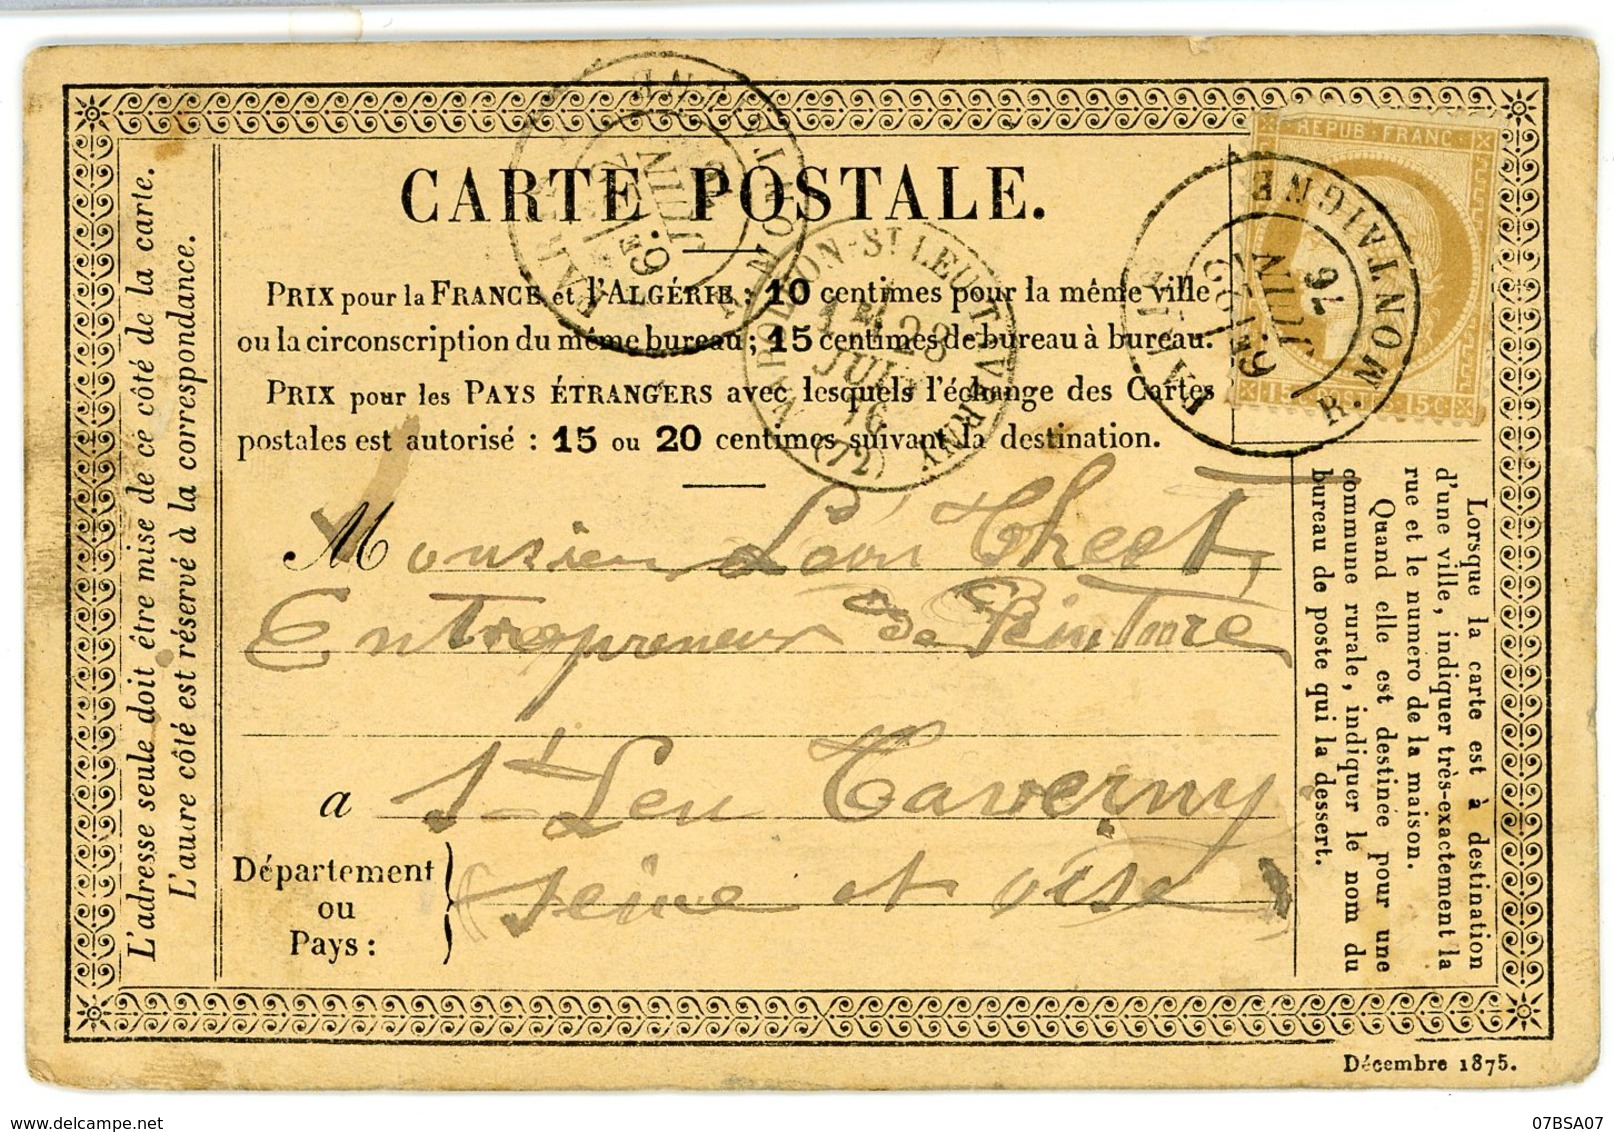 CARTE POSTALE.
PRIX pour la FRANCE et l'ALGÉRIE : 10 centimes pour la même ville
ou la circonscription du même bureau ; 15 centimes de bureau à bureau.
PRIX pour les PAYS ÉTRANGERS avec lesquels l'échange des Cartes
postales est autorisé : 15 ou 20 centimes suivant la destination.
Monsieur Léon Theet
Entrepreneur de Peinture
a St Leu Taverny
Département
ou
Pays :
(Seine et oise)
L'adresse seule doit être mise de ce côté de la carte.
L'autre côté est réservé à la correspondance.
Lorsque la carte est à destination
d'une ville, indiquer très-exactement la
rue et le numero de la maison.
Quand elle est destinée pour une
commune rurale, indiquer le nom du
bureau de poste qui la dessert.
REPUB. FRANC
15 C. 15 C
PARIS
R. MONTAIGNE
6E
JUIN
76
PARIS
R. MONTAIGNE
6E
JUIN
NAPOLEON-ST LEU-TAVERNY
1E
28
JUIN
76
(72)
Décembre 1875.
07BSA07